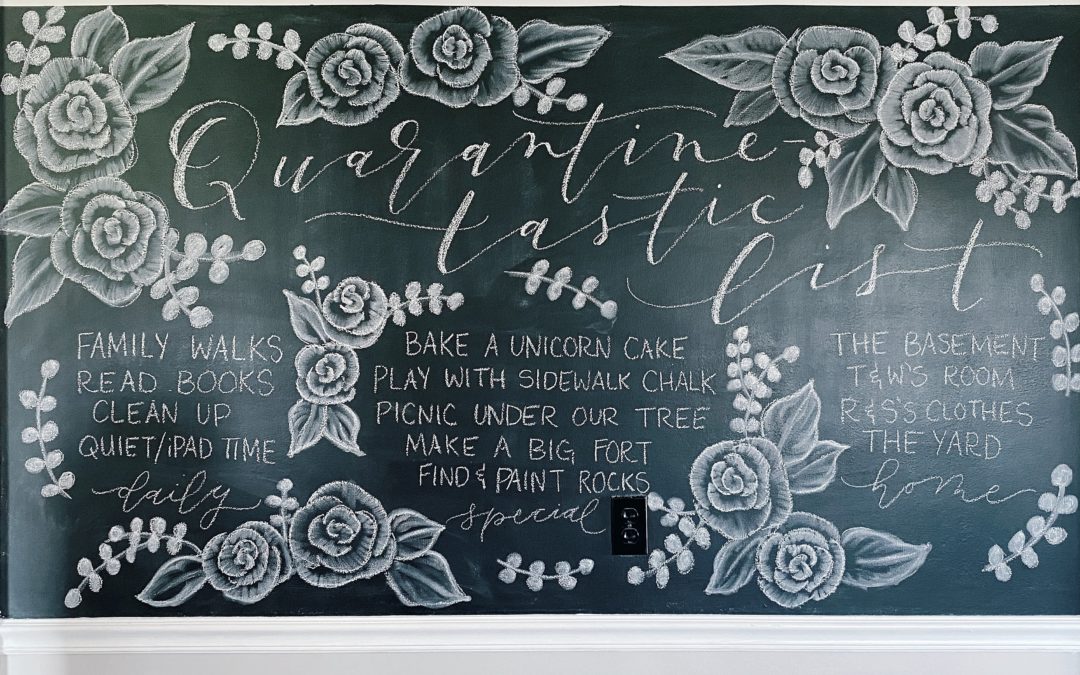 Quarantine-
tastic
list
FAMILY WALKS
READ BOOKS
CLEAN UP
QUIET/iPAD TIME
daily
BAKE A UNICORN CAKE
PLAY WITH SIDEWALK CHALK
PICNIC UNDER OUR TREE
MAKE A BIG FORT
FIND & PAINT ROCKS
special
THE BASEMENT
T&W'S ROOM
R&S'S CLOTHES
THE YARD
home